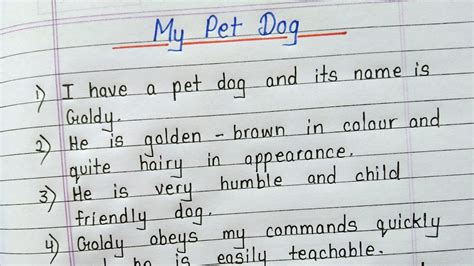 My Pet Dog
1) I have a pet dog and its name is
Goldy.
2) He is golden - brown in colour and
quite hairy in appearance.
3) He is very humble and child
friendly dog.
4) Goldy obeys my commands quickly
he is easily teachable.